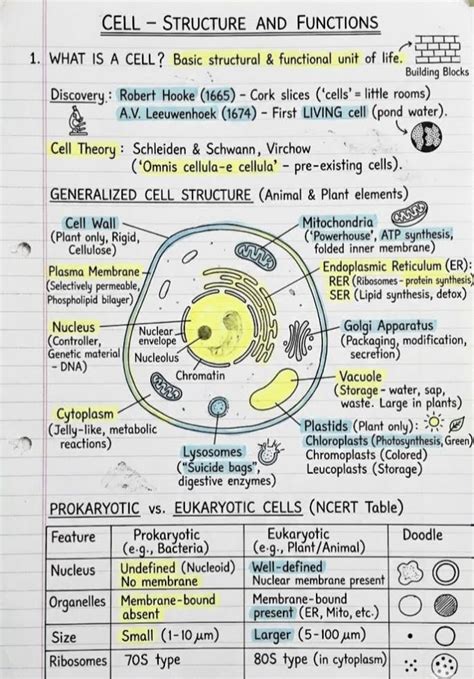 CELL – STRUCTURE AND FUNCTIONS
1. WHAT IS A CELL? Basic structural & functional unit of life.
Building Blocks
Discovery: Robert Hooke (1665) – Cork slices ('cells' = little rooms)
A.V. Leeuwenhoek (1674) – First LIVING cell (pond water).
Cell Theory: Schleiden & Schwann, Virchow
('Omnis cellula-e cellula' – pre-existing cells).
GENERALIZED CELL STRUCTURE (Animal & Plant elements)
Cell Wall
(Plant only, Rigid,
Cellulose)
Plasma Membrane
(Selectively permeable,
Phospholipid bilayer)
Nucleus
(Controller,
Genetic material
– DNA)
Cytoplasm
(Jelly-like, metabolic
reactions)
Nuclear
envelope
Nucleolus
Chromatin
Lysosomes
("Suicide bags",
digestive enzymes)
Mitochondria
('Powerhouse', ATP synthesis,
folded inner membrane)
Endoplasmic Reticulum (ER):
RER (Ribosomes – protein synthesis)
SER (Lipid synthesis, detox)
Golgi Apparatus
(Packaging, modification,
secretion)
Vacuole
(Storage – water, sap,
waste. Large in plants)
Plastids (Plant only):
Chloroplasts (Photosynthesis, Green)
Chromoplasts (Colored)
Leucoplasts (Storage)
PROKARYOTIC vs. EUKARYOTIC CELLS (NCERT Table)
Feature Prokaryotic (e.g., Bacteria) Eukaryotic (e.g., Plant/Animal) Doodle
Nucleus Undefined (Nucleoid) No membrane Well-defined Nuclear membrane present
Organelles Membrane-bound absent Membrane-bound present (ER, Mito, etc.)
Size Small (1-10 μm) Larger (5-100 μm)
Ribosomes 70S type 80S type (in cytoplasm)